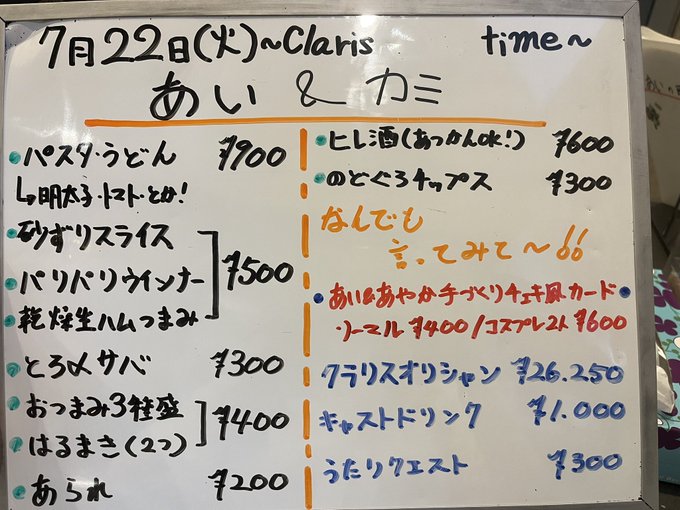 7月22日(火)~Claris time~
あい & カミ
パスタ・うどん ¥900
↳明太子・トマト・とか!
砂ずりスライス
パリパリウインナー ¥500
乾燥生ハムつまみ
とろ〆サバ ¥300
おつまみ3種盛 ¥400
はるまき(2つ)
あられ ¥200
ヒレ酒(あつかんOK!) ¥600
のどぐろチップス ¥300
なんでも
言ってみて~!!
あい&あやか手づくりチェキ風カード
ノーマル¥400/コスプレ2人¥600
クラリスオリシャン ¥26.250
キャストドリンク ¥1.000
うたリクエスト ¥300